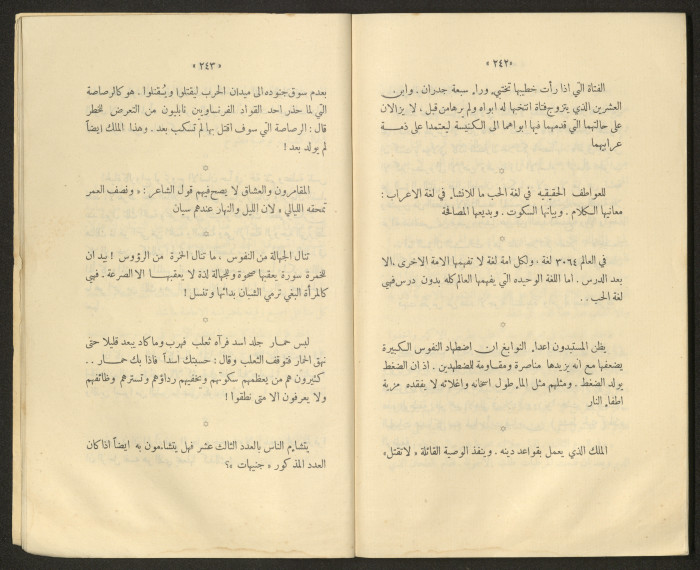 «٢٤٢»
الفتاة التي اذا رأت خطيبها تختبيء وراء سبعة جدران . وابن
العشرين الذي يتزوج فتاة انتخبها له ابواه ولم يرها من قبل ، لا يزالان
على حالتهما التي قدمهما فيها ابواهما الى الكنيسة ليعتمدا على ذمة
عرابيهما
للعواطف الحقيقيه في لغة الحب ما للانشاء في لغة الاعراب :
معانيها الكلام . وبيانها السكوت . وبديعها المصالحة
في العالم ٣٠٦٤ لغة ، ولكل امة لغة لا تفهمها الامة الاخرى ،الا
بعد الدرس . اما اللغة الوحيده التي يفهمها العالم كله بدون درس فهي
لغة الحب . .
يظن المستبدون اعداء النوابغ ان اضطهاد النفوس الكبيرة
يضعفها مع انه يزيدها مناصرة ومقاومة للمضطهدين . اذ ان الضغط
يولد الضغط . ومثلهم مثل الماء طول اسخانه واغلائه لا يفقده مزية
اطفاء النار
الملك الذي يعمل بقواعد دينه . وينفذ الوصية القائلة « لاتقتل»
«٢٤٣»
بعدم سوق جنوده الى ميدان الحرب ليقتلوا ويُقتلوا . هو كالرصاصة
التي لما حذر احد القواد الفرنساويين نابليون من التعرض للخطر
قال : الرصاصة التي سوف اقتل بها لم تسكب بعد . وهذا الملك ايضاً
لم يولد بعد !
المقامرون والعشاق لا يصح فيهم قول الشاعر : « ونصف العمر
تمحقه الليالي » لان الليل والنهار عندهم سيان
تنال الجهالة من النفوس ، ما تنال الخمرة من الرؤوس ! بيد ان
للخمرة سورة يعقبها صحوة وللجهالة لذة لا يعقبها الا الصرعة . فهي
كالمرأة البغي ترمي الشبان بدائها وتنسل !
لبس حمار جلد اسد فرآه ثعلب فهرب وما كاد يبعد قليلا حتى
نهق الحمار فتوقف الثعلب وقال : حسبتك اسداً فاذا بك حمار . .
كثيرون هم من يعظمهم سكوتهم ويخفيهم رداؤهم وتسترهم وظائفهم
ولا يعرفون الا متى نطقوا !
يتشايم الناس بالعدد الثالث عشر فهل يتشاءمون به ايضاً اذا كان
العدد المذكور « جنيهات »؟